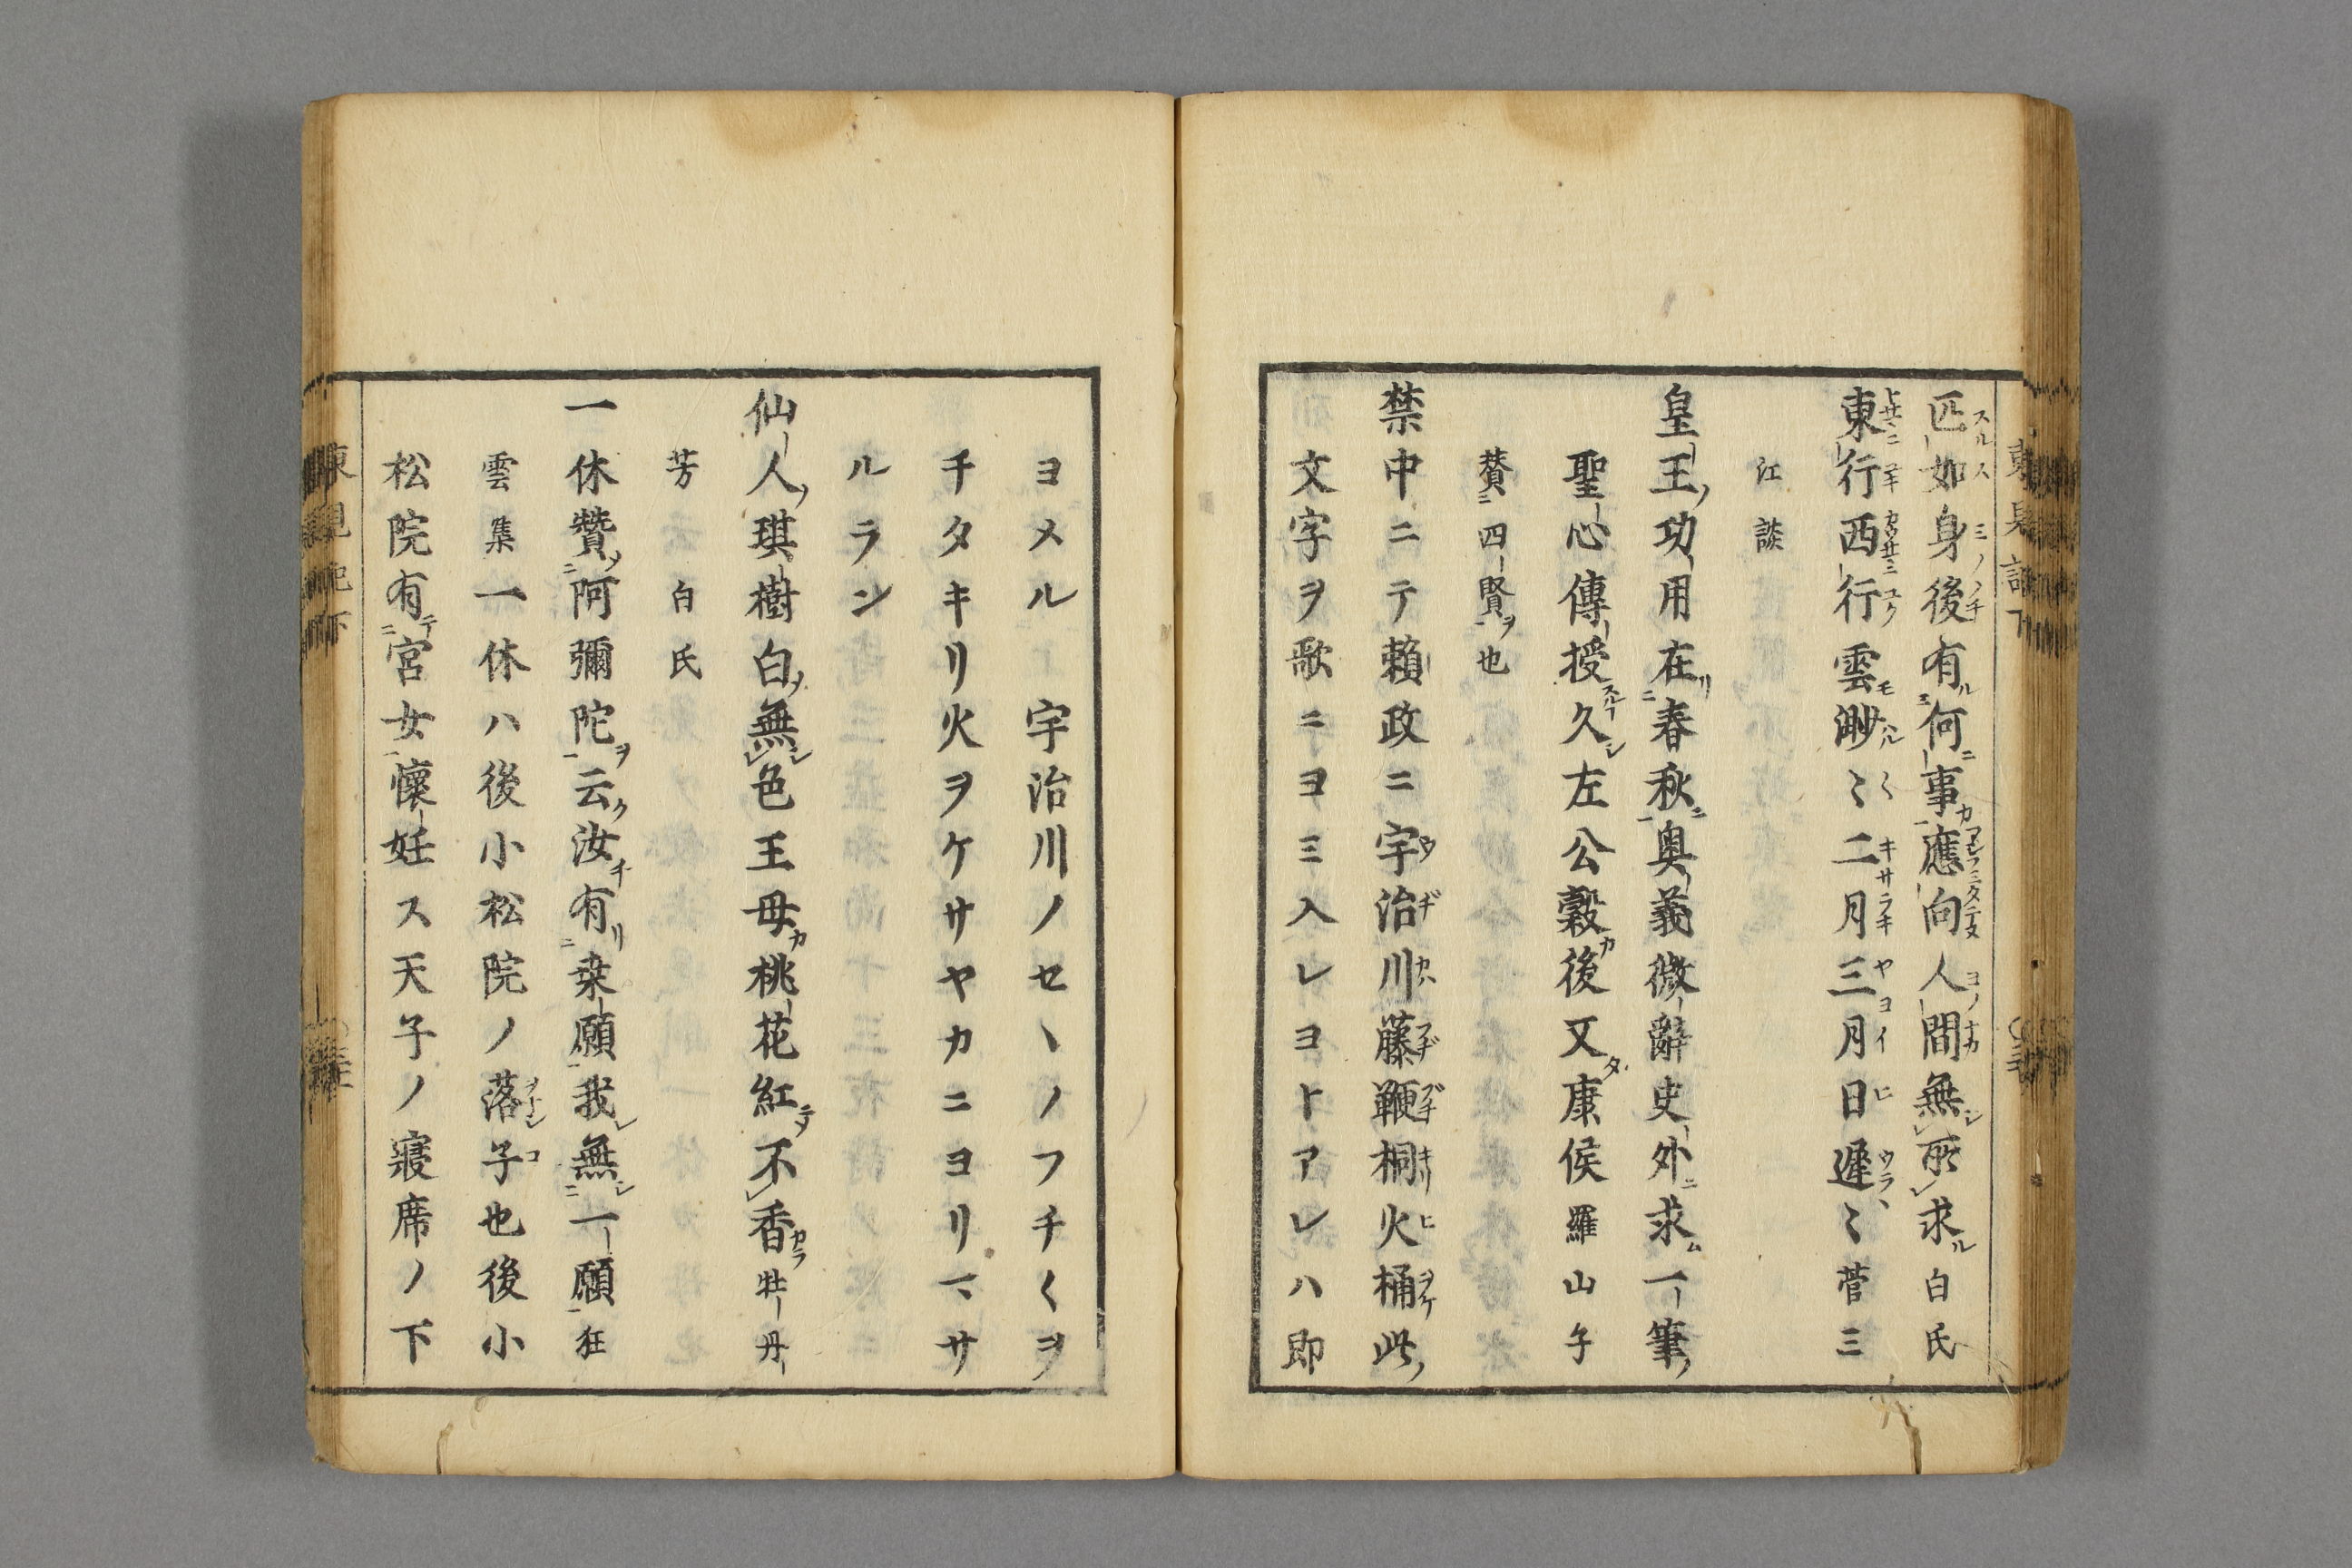 匹如身後有何事應向人間無所求白氏
東行西行雲渺〻二月三月日遲〻菅三
江談
皇王功用在春秋奥義微辭史外求一筆
聖心傳授久左公穀後又康侯羅山子
賛四賢也
禁中ニテ頼政ニ宇治川藤鞭桐火桶此
文字ヲ歌ニヨミ入レヨトアレハ即
ヨメル 宇治川ノセヽノフチ〱ヲ
チタキリ火ヲケサヤカニヨリマサ
ルラン
仙人琪樹白無色王母桃花紅不香牡丹
芳白氏
一休賛阿彌陀云汝有桒願我無一願狂
雲集一休ハ後小松院ノ落子也後小
松院有宮女懐妊ス天子ノ寢席ノ下
東見記下